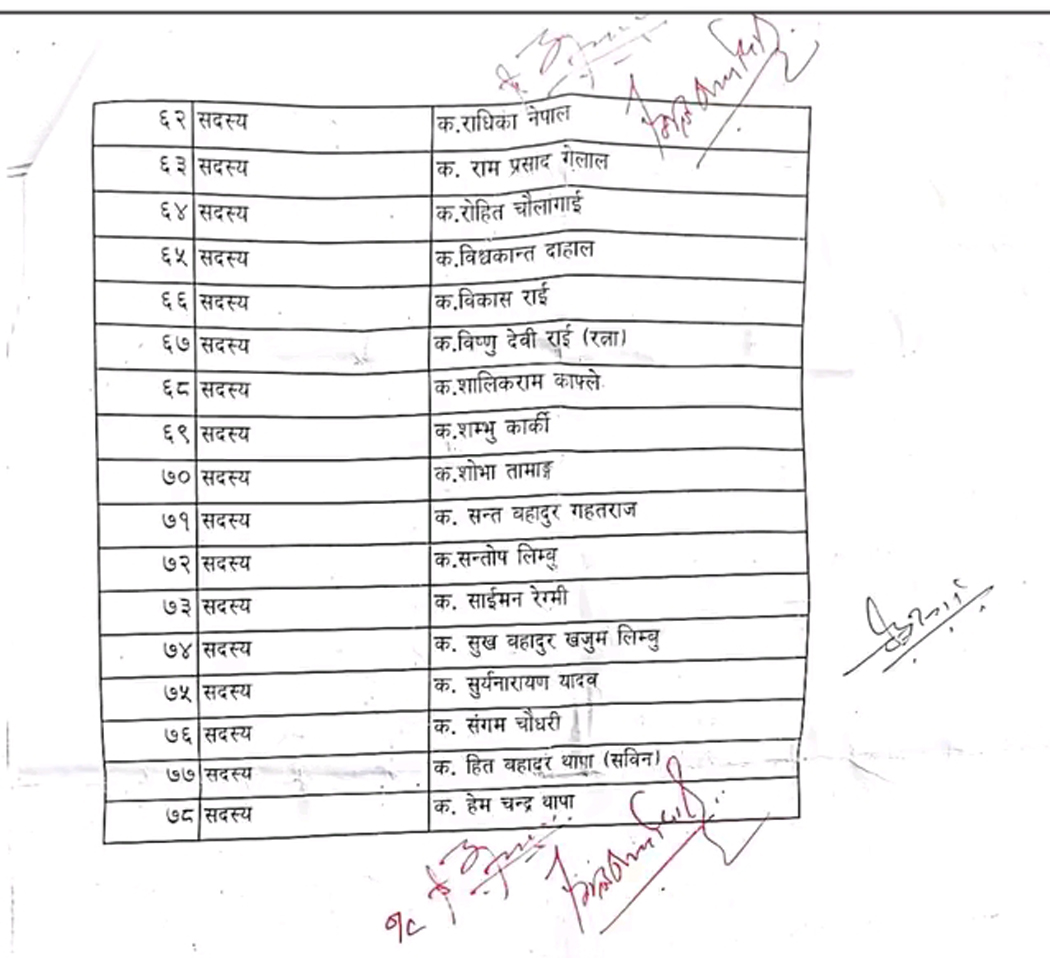 ६२ सदस्य क.राधिका नेपाल
६३ सदस्य क. राम प्रसाद गेलाल
६४ सदस्य क.रोहित चौलागाई
६५ सदस्य क.विश्वकान्त दाहाल
६६ सदस्य क.विकास राई
६७ सदस्य क.विष्णु देवी राई (रत्ना)
६८ सदस्य क.शालिकराम काफ्ले
६९ सदस्य क.शम्भु कार्की
७० सदस्य क.शोभा तामाङ्ग
७१ सदस्य क. सन्त बहादुर गहतराज
७२ सदस्य क.सन्तोष लिम्बु
७३ सदस्य क. साईमन रेग्मी
७४ सदस्य क. सुख बहादुर खजुम लिम्बु
७५ सदस्य क. सुर्यनारायण यादव
७६ सदस्य क. संगम चौधरी
७७ सदस्य क. हित बहादुर थापा (सविन)
७८ सदस्य क. हेम चन्द्र थापा